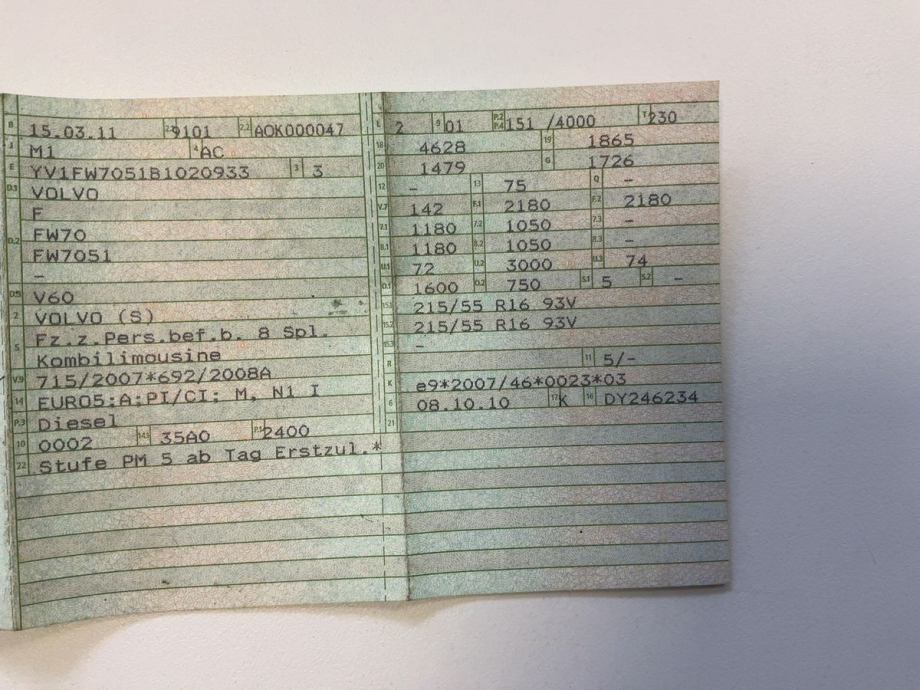 B 15.03.11 2.1 9101 2.2 AOK000047
J M1 4 AC
E YV1FW7051B1020933 3 3
D.1 VOLVO
F
D.2 FW70
FW7051
–
D.3 V60
2 VOLVO (S)
5 Fz.z.Pers.bef.b. 8 Spl.
Kombilimousine
V.9 715/2007*692/2008A
14 EURO5;A;PI/CI; M, N1 I
P.3 Diesel
10 0002 14.1 35A0 P.1 2400
22 Stufe PM 5 ab Tag Erstzul.*
L 2 9 01 P.2 P.4 151 /4000 T 230
18 4628 19 1865
20 1479 G 1726
12 – 13 75 Q –
V.7 142 F.1 2180 F.2 2180
7.1 1180 7.2 1050 7.3 –
8.1 1180 8.2 1050 8.3 –
U.1 72 U.2 3000 U.3 74
O.1 1600 O.2 750 S.1 5 S.2 –
15.1 215/55 R16 93V
15.2 215/55 R16 93V
15.3 –
R 11 5/–
K e9*2007/46*0023*03
6 08.10.10 17 K 16 DY246234
21